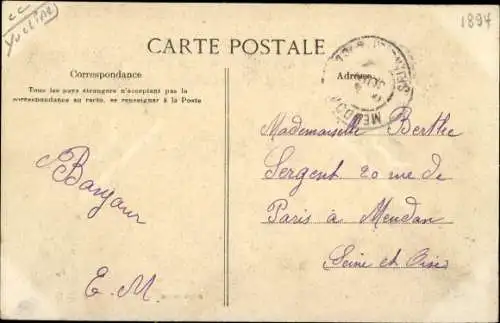 CC
1894
CARTE POSTALE
Correspondance
Adresse
Tous les pays étrangers n'acceptent pas la
correspondance au recto, se renseigner à la Poste
MEUDON
Mademoiselle Berthe
Sergent 20 rue de
Paris à Meudon
Seine et Oise
Bonjour
E. M.